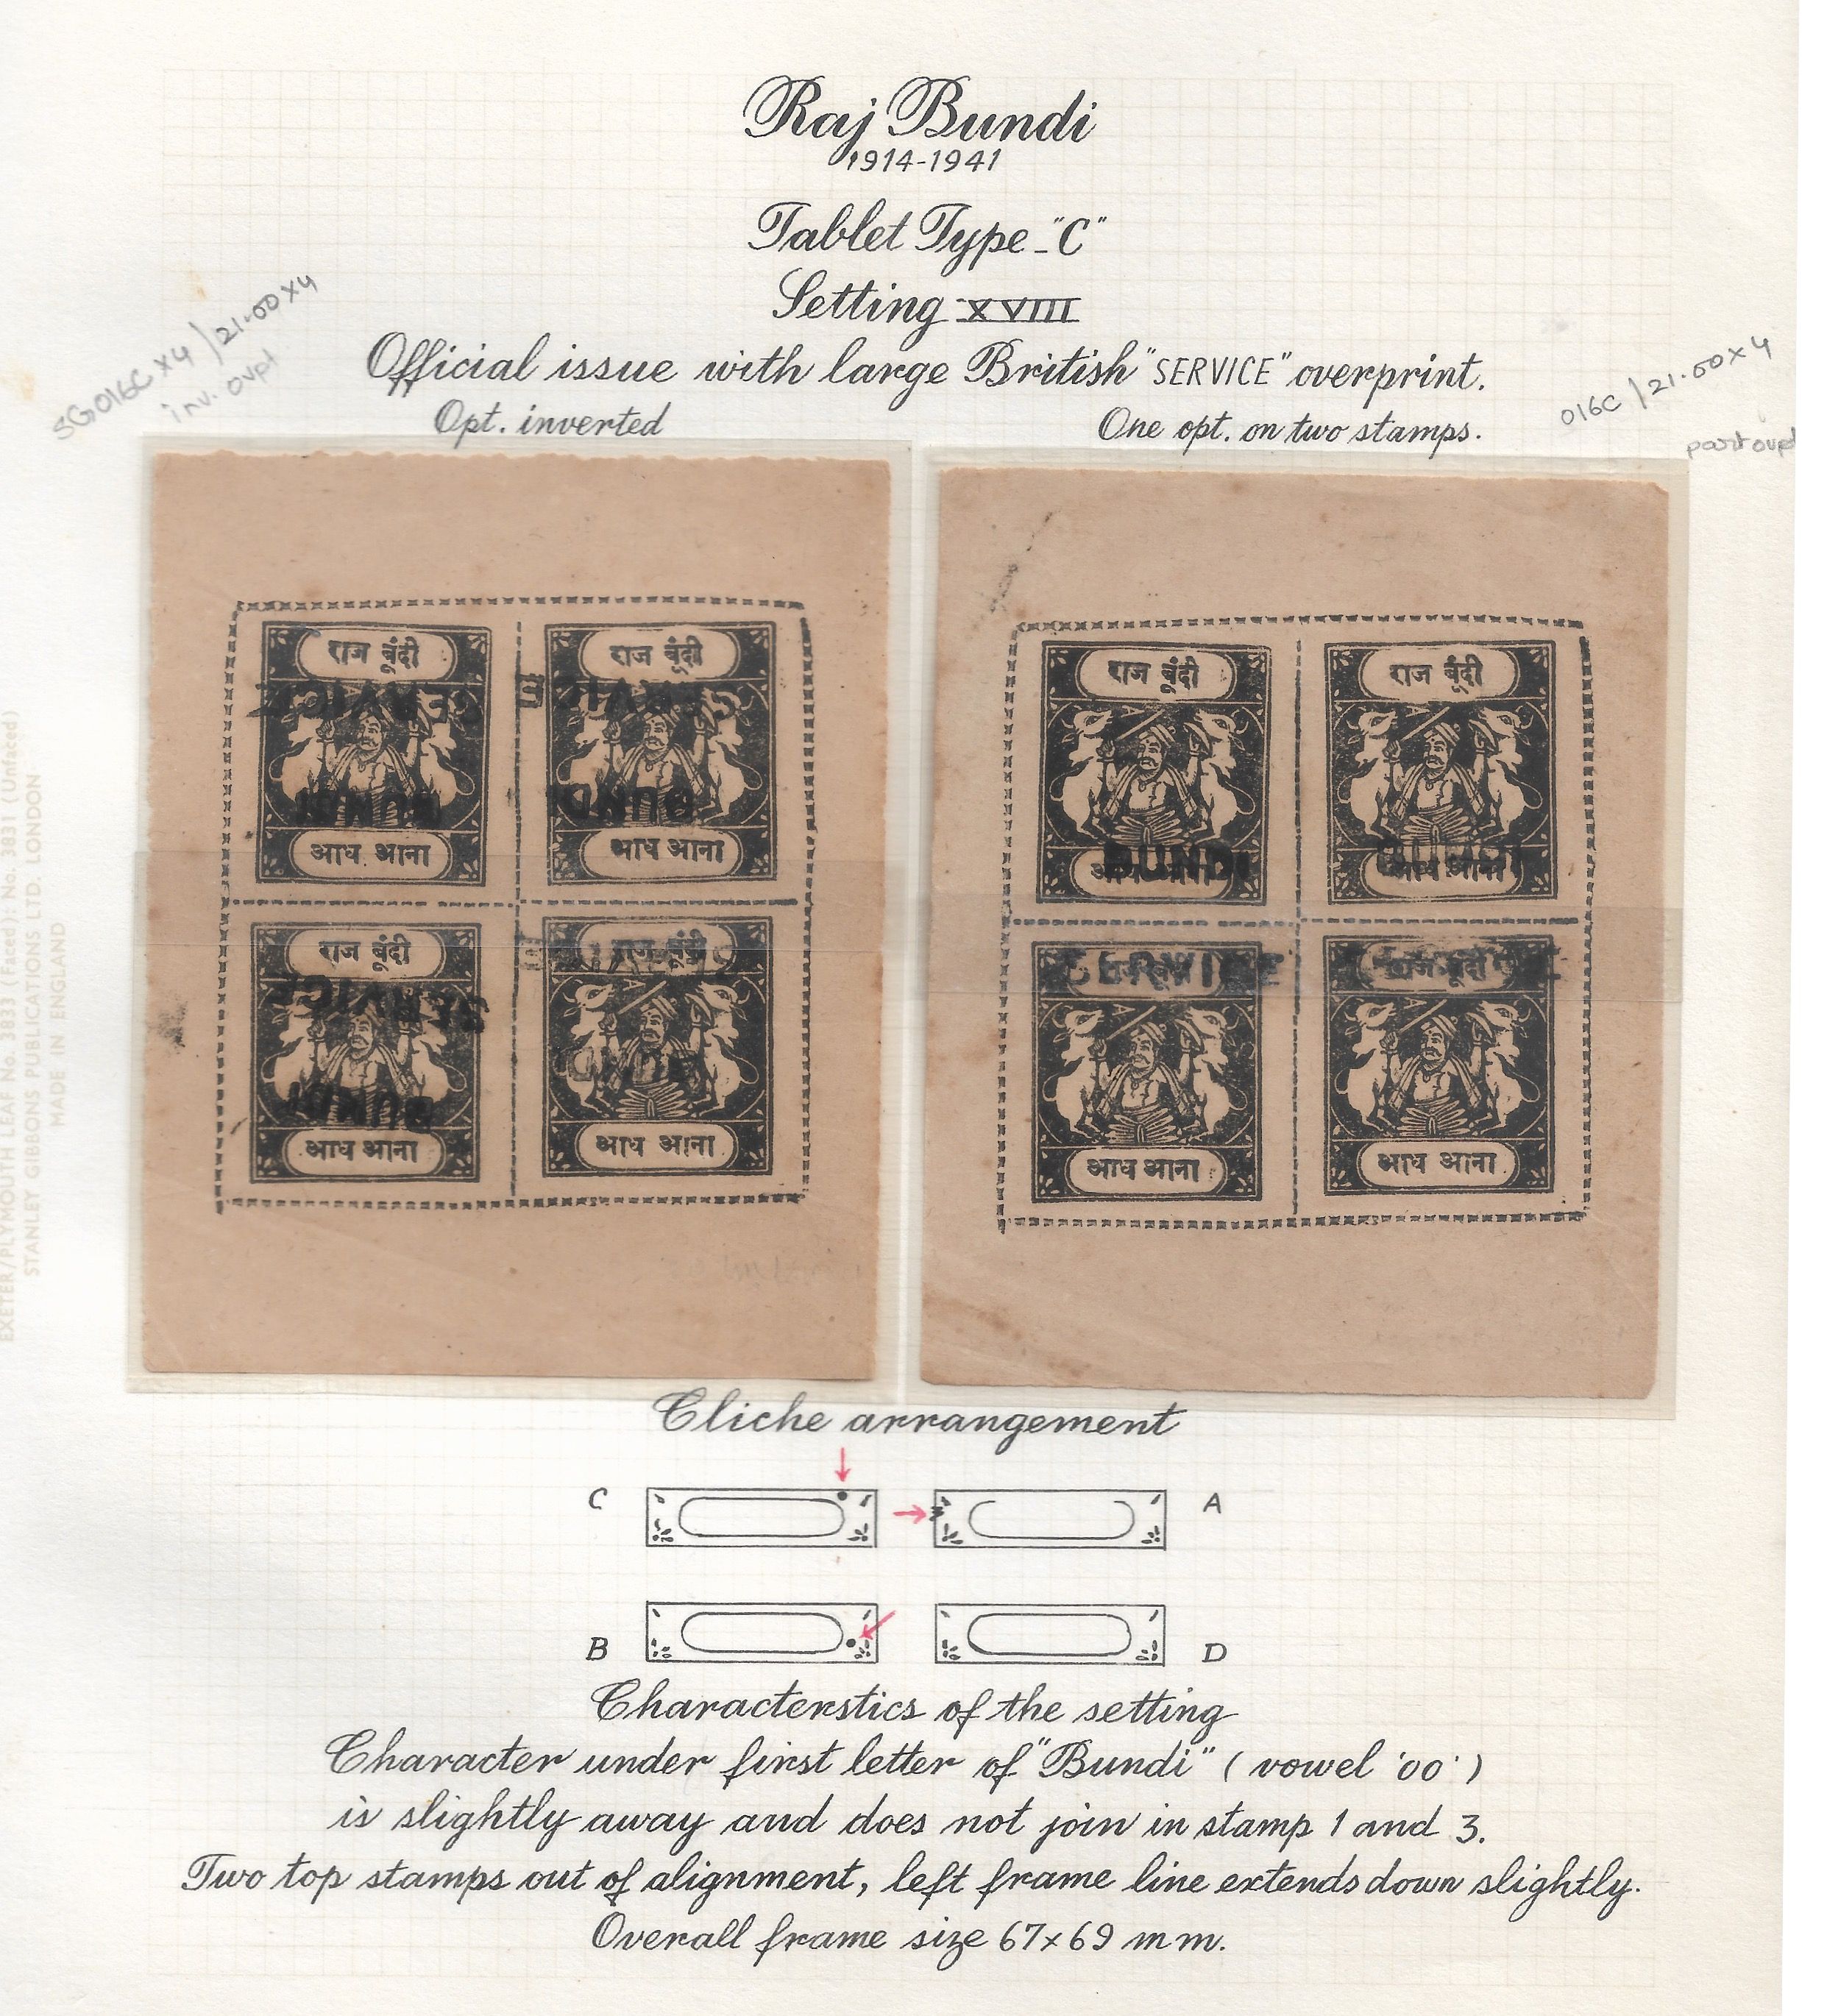 Raj Bundi
1914-1941
Tablet Type-"C"
Setting XVIII
Official issue with large British "SERVICE" overprint.
SG016C x4 / 21.00 x 4
inv. ovpt
Opt. inverted
One opt. on two stamps.
016C / 21.00 x 4
part ovpt
राज बूंदी
राज बूंदी
SERVICE
SERVICE
BUNDI
BUNDI
आध आना
आध आना
राज बूंदी
राज बूंदी
SERVICE
BUNDI
आध आना
आध आना
राज बूंदी
राज बूंदी
BUNDI
BUNDI
आध आना
आध आना
SERVICE
SERVICE
राज बूंदी
राज बूंदी
आध आना
आध आना
EXETER/PLYMOUTH LEAF No. 3833 (Faced): No. 3831 (Unfaced)
STANLEY GIBBONS PUBLICATIONS LTD. LONDON
MADE IN ENGLAND
Cliche arrangement
C
A
B
D
Characterstics of the setting
Character under first letter of "Bundi" (vowel 'oo')
is slightly away and does not join in stamp 1 and 3.
Two top stamps out of alignment, left frame line extends down slightly.
Overall frame size 67x69 mm.